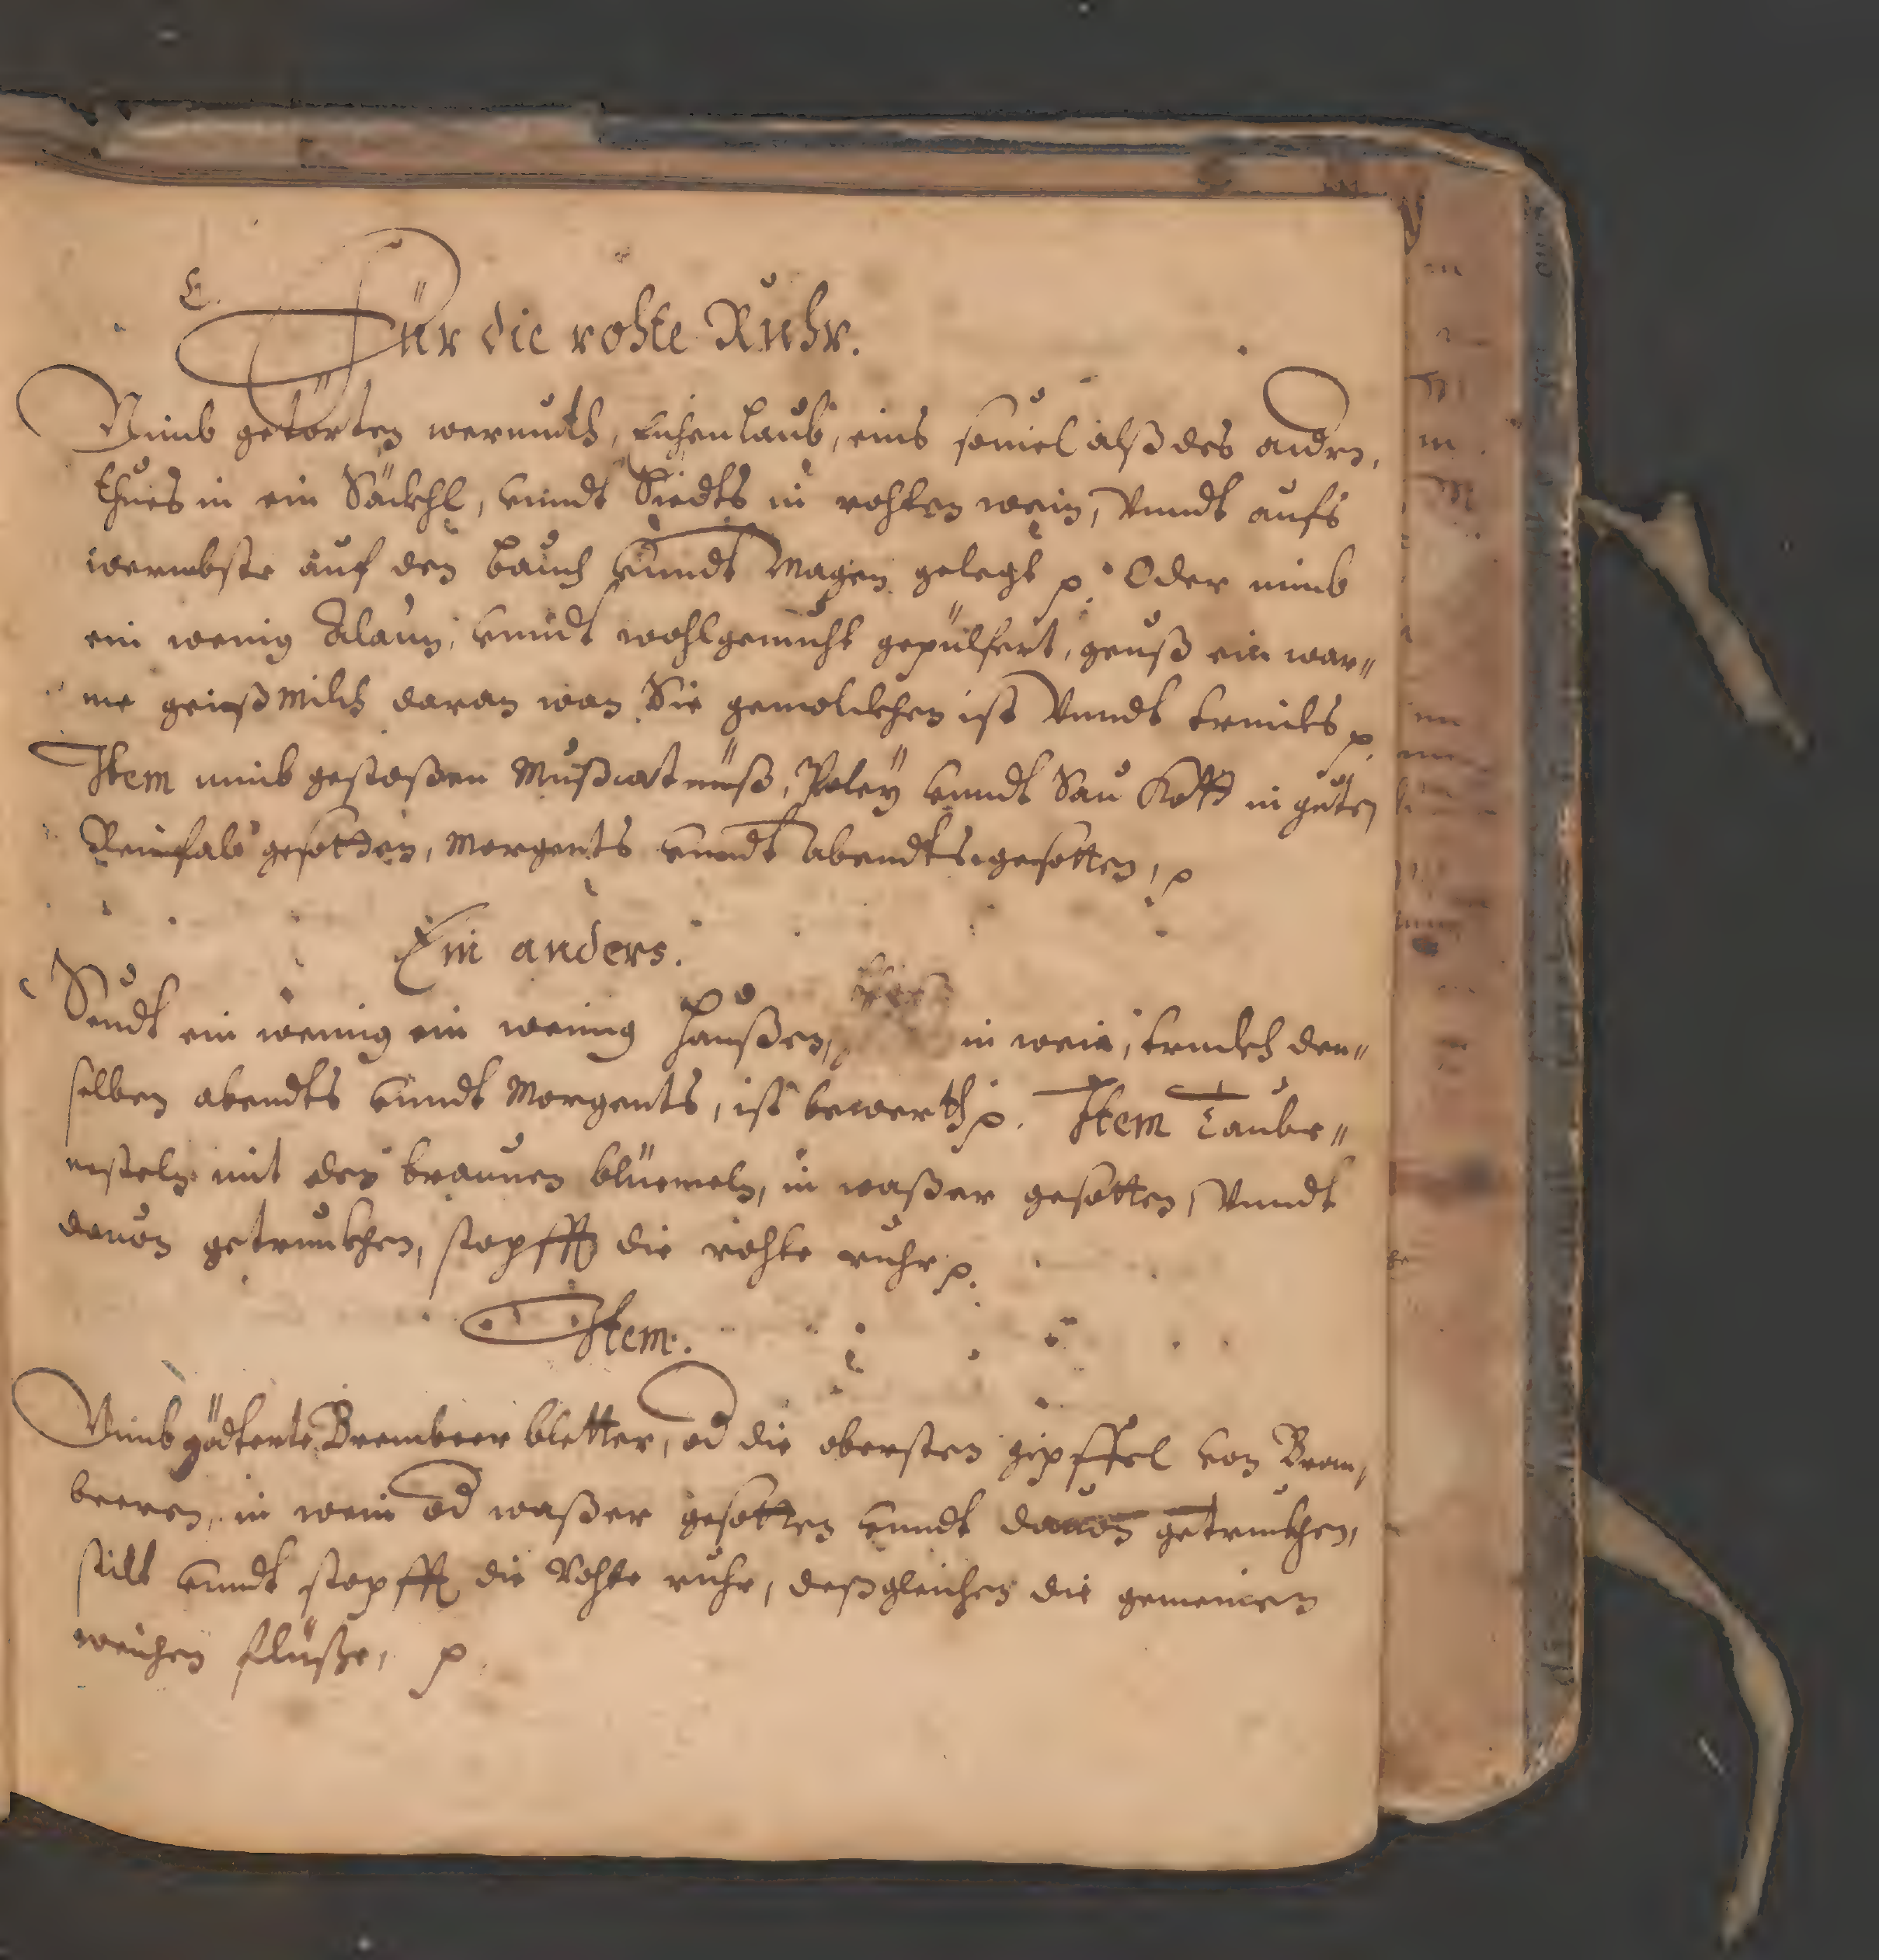 Für die rohte Ruhr.
Nimb getörten wermuth, Eichenlaub, eins souiel alß des andrn,
thues in ein Säckhl, vnndt Siedts in rohten wein, Vnndt aufs
wermbste auf den bauch vnndt Magen gelegt p. Oder nimb
ein wenig Alaun, vnndt wohlgemuht gepülfert, geuß ein war„
me geißmilch daran wan Sie gemolckhen ist Vnndt trinkts p.
Item nimb gestoßen Mußcatnuß, Poleÿ vnndt Sau in guten
Reinfal gesotten, Morgents vnndt abendts gesotten, p
Ein anders.
Seudt ein wenig ein wenig haußen, in wein, trinckh den„
selben abendts vnndt Morgents, ist bewerth p. Item Taube„
nesteln mit den braunen blüemeln, in waßer gesotten, Vnndt
dauon getrunckhen, stopfft die rohte ruhr p.
Item.
Nimb gödterte Brembeer bletter, od die obersten gipffel von Brem„
beeren, in wein od waßer gesotten vnndt dauon getrunckhen,
stilt vnndt stopfft die Rohte ruhr, deßgleichen die gemeinen
weichen flüße, p